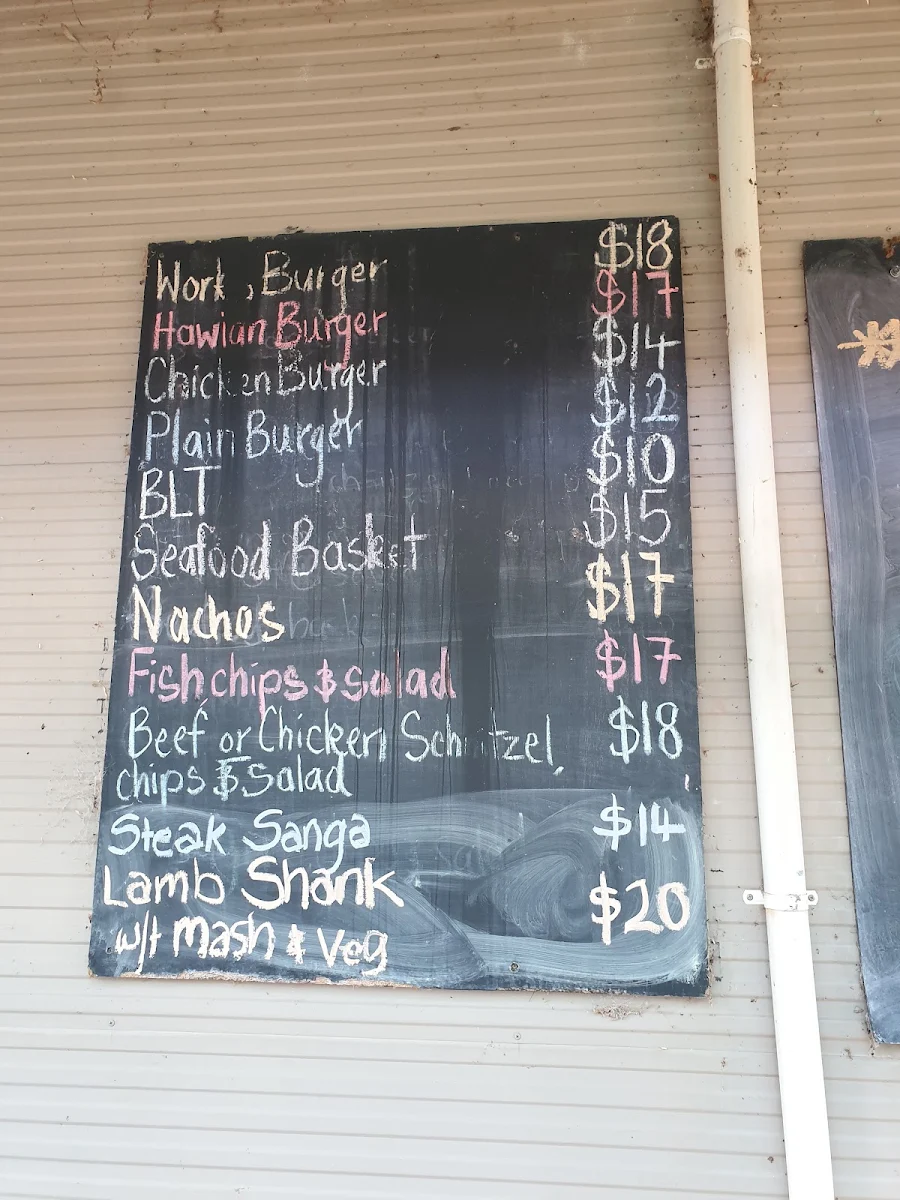 Work, Burger $18
Hawian Burger $17
Chicken Burger $14
Plain Burger $12
BLT $10
Seafood Basket $15
Nachos $17
Fish chips & salad $17
Beef or Chicken Schnitzel, $18
chips & Salad
Steak Sanga $14
Lamb Shank $20
w/t mash & veg